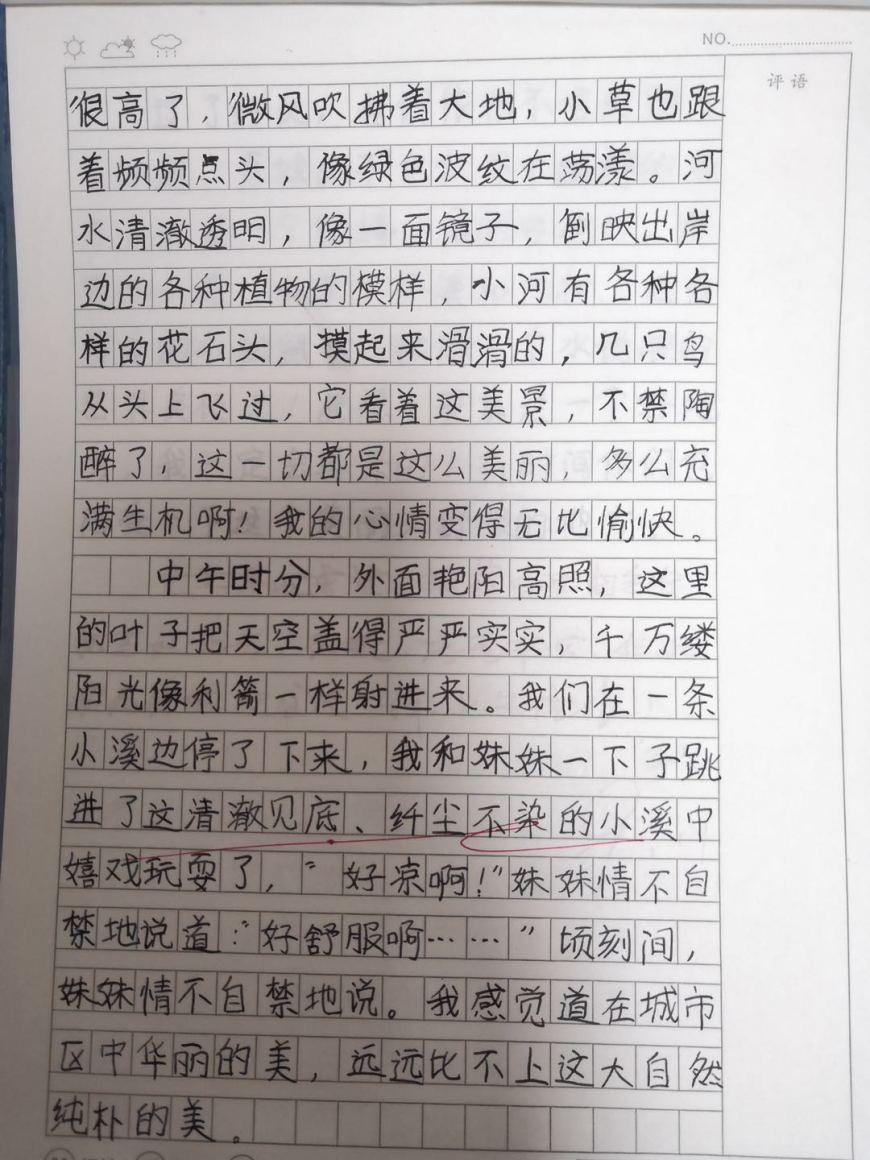 NO.
评语
很高了，微风吹拂着大地，小草也跟
着频频点头，像绿色波纹在荡漾。河
水清澈透明，像一面镜子，倒映出岸
边的各种植物的模样，小河有各种各
样的花石头，摸起来滑滑的，几只鸟
从头上飞过，它看着这美景，不禁陶
醉了，这一切都是这么美丽，多么充
满生机啊！我的心情变得无比愉快。
中午时分，外面艳阳高照，这里
的叶子把天空盖得严严实实，千万缕
阳光像利箭一样射进来。我们在一条
小溪边停了下来，我和妹妹一下子跳
进了这清澈见底、纤尘不染的小溪中
嬉戏玩耍了，“好凉啊！”妹妹情不自
禁地说道：“好舒服啊……”顷刻间，
妹妹情不自禁地说。我感觉道在城市
区中华丽的美，远远比不上这大自然
纯朴的美。